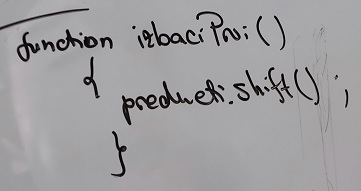 function izbaciPrvi()
{
predmeti.shift();
}